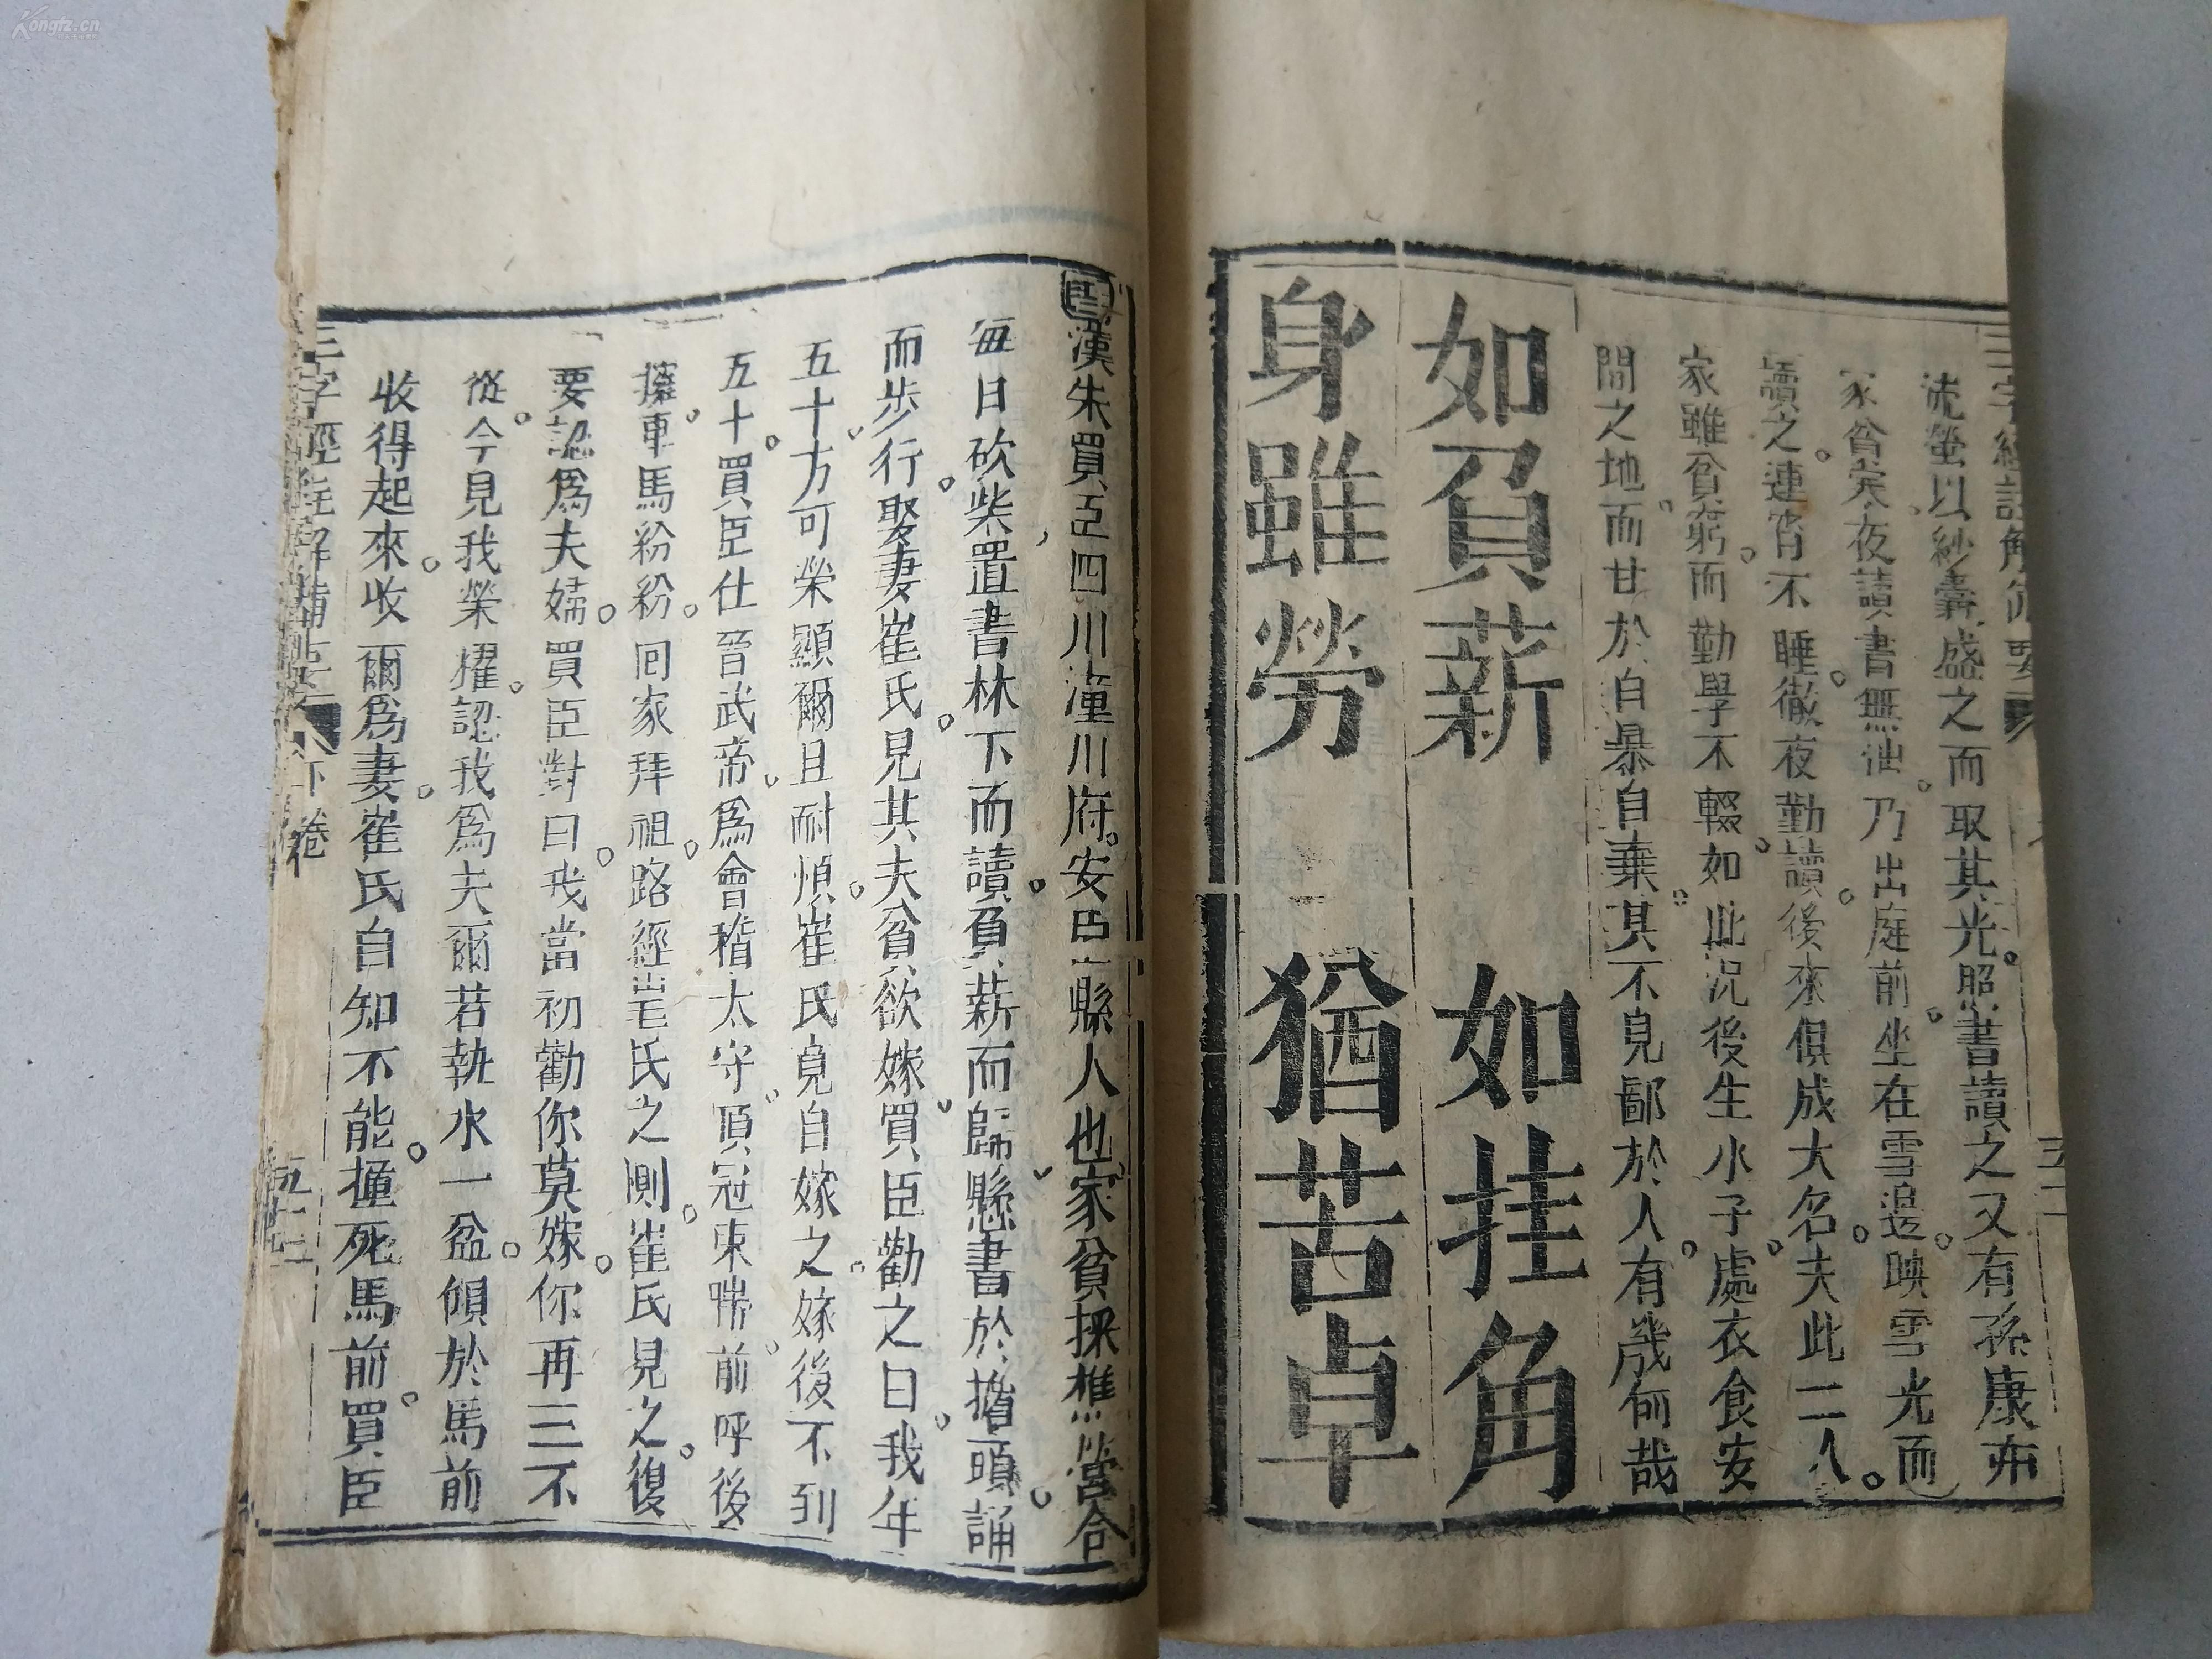 三字經註解備要
五二
流螢以紗囊盛之而取其光照書讀之又有孫康亦
家貧矣夜讀書無油乃出庭前坐在雪邊映雪光而
讀之連宵不睡徹夜勤讀後來俱成大名夫此二人
家雖貧窮而勤學不輟如此況後生小子處衣食安
閒之地而甘於自暴自棄其不見鄙於人有幾何哉
如負薪 如挂角
身雖勞 猶苦卓
漢朱買臣四川潼川府安縣人也家貧採樵營合
每日砍柴置書林下而讀負薪而歸懸書於擔頭誦
而步行娶妻崔氏見其夫貧欲嫁買臣勸之曰我年
五十方可榮顯爾且耐煩崔氏竟自嫁之嫁後不到
五十買臣仕晉武帝為會稽太守頂冠束帶前呼後
擁車馬紛紛回家拜祖路經崔氏之側崔氏見之復
要認為夫婦買臣對曰我當初勸你莫嫁你再三不
從今見我榮耀認我為夫爾若執水一盆傾於馬前
收得起來收爾為妻崔氏自知不能撞死馬前買臣
三字經註解備要
下卷
五十三
Kongfz.cn